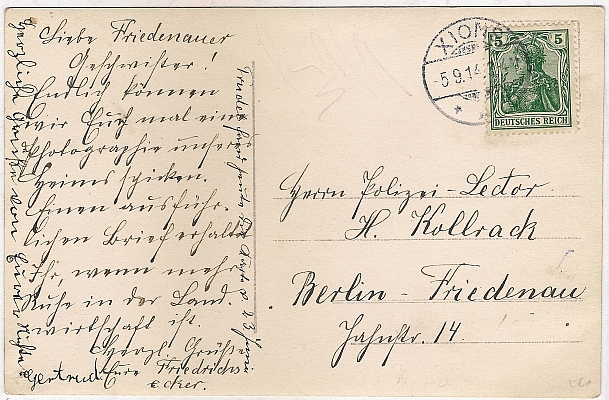 Liebe Friedenauer
Geschwister!
Endlich können
wir Euch mal eine
Photographie unseres
Heims spicken.
Einen ausführ.
lichen Brief erhaltet
Ihr, wenn mehr
Ruhe in der Land.
wirtschaft ist.
Herzl. Grüße
Eure Friedrichs
ecker.
Herzliche Grüße von Eurer
Gertrud
XIONS
-5.9.14
5 5
DEUTSCHES REICH
Herrn Polizei-Lector
H. Kollrack
Berlin-Friedenau
Jahnstr. 14